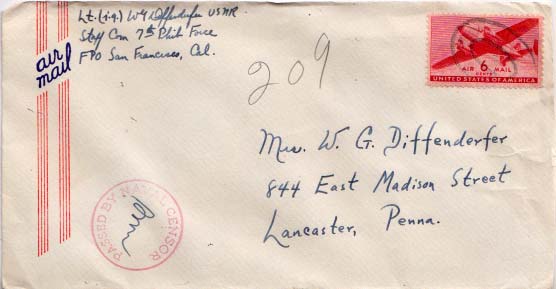 Lt. (j.g.) W G Diffenderfer USNR
Staff Com 7th Phib Force
FPO San Francisco, Cal.
air mail
209
AIR 6 MAIL
CENTS
UNITED STATES OF AMERICA
Mrs. W. G. Diffenderfer
844 East Madison Street
Lancaster, Penna.
PASSED BY NAVAL CENSOR